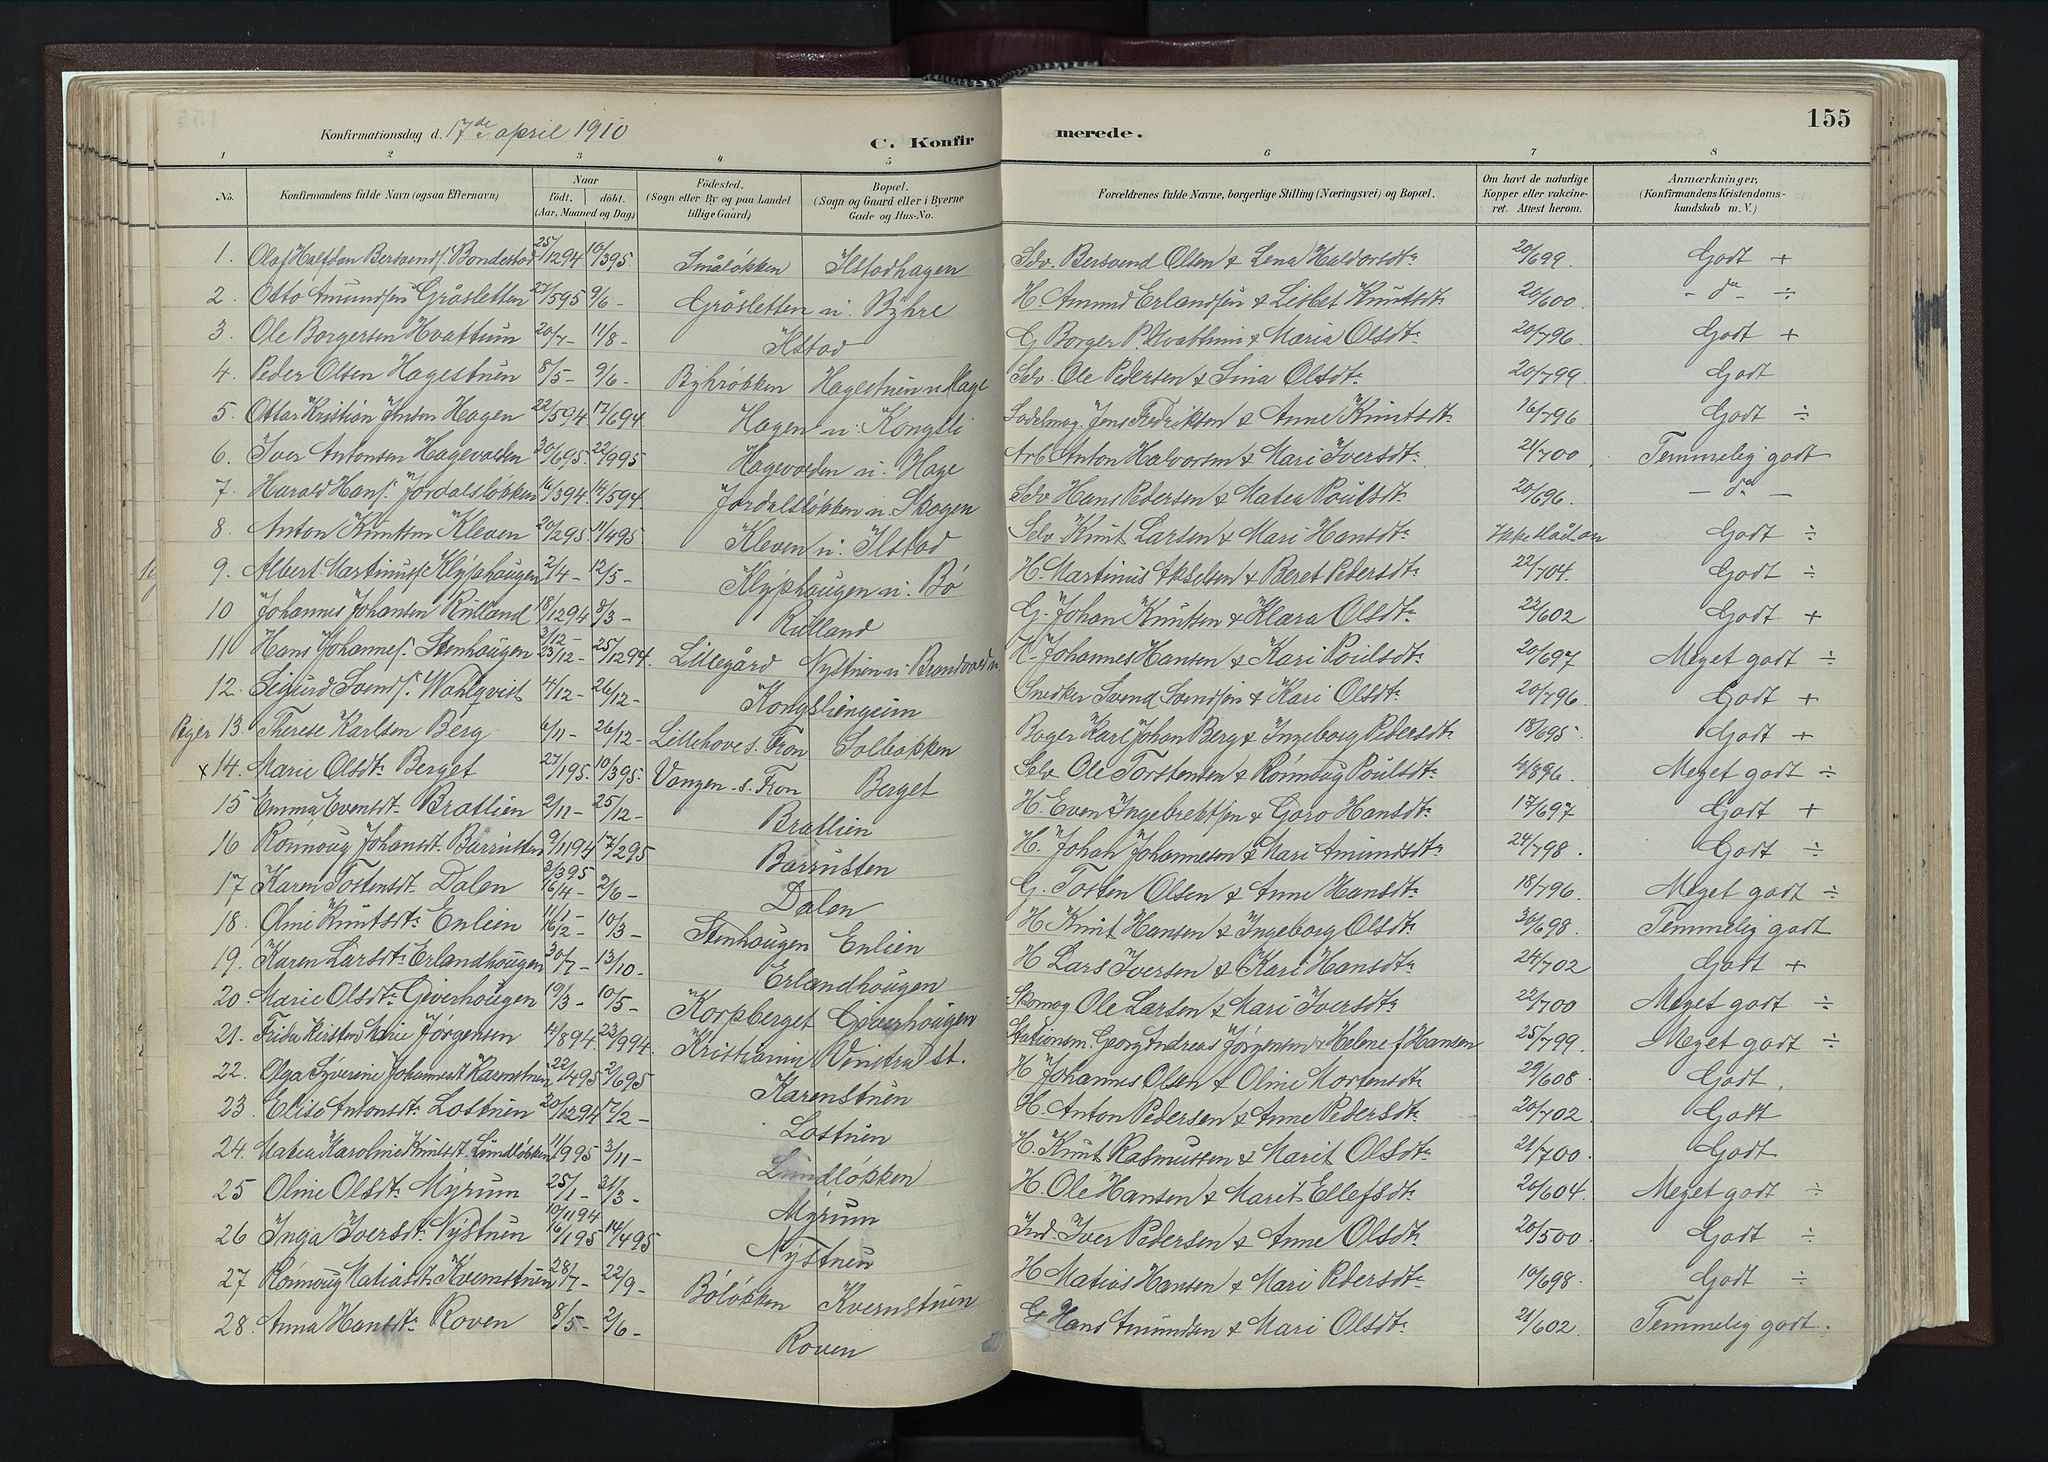 155
Konfirmationsdag d. 17de april 1910
C. Konfirmerede.
1 2 3 4 5 6 7 8
No. Konfirmandens fulde Navn (ogsaa Efternavn) Naar født. døbt. (Aar, Maaned og Dag) Fødested. (Sogn eller By og paa Landet tillige Gaard) Bopæl. (Sogn og Gaard eller i Byerne Gade og Hus-No. Forældrenes fulde Navne, borgerlige Stilling (Næringsvei) og Bopæl. Om havt de naturlige Kopper eller vakcineret. Attest herom. Anmærkninger, (Konfirmandens Kristendomskundskab m. V.)
1. Olaf Halfdan Bersvends. Bondestad 25/1294 10/395. Småløkken Ilstadhagen Selv. Bersvend Olsen & Lena Haldorsdtr 20/699. Godt +
2. Otto Amundsen Gråsletten 27/595 9/6- Gråsletten u. Byhre H. Amund Erlandsen & Lisbet Knutsdtr 20/600. - do - ÷
3. Ole Borgersen Hvattum 20/7- 11/8- Ilstad G Borger P. Hvattum & Maria Olsdtr 20/796. Godt +
4. Peder Olsen Hagestuen 8/5- 9/6- Byhrøkken Hagestuen u Hage Selv. Ole Pedersen & Lina Olsdtr 20/799. Godt
5. Ottar Kristian Jensen Hagen 22/594 17/694. Hagen u. Kongsli Sadelmag. Jens Fredriksen & Anne Knutsdtr 16/796 Godt ÷
6. Iver Antonsen Hagevolden 30/695. 22/995 Hagevolden u. Hage Arb. Anton Halvorsen & Mari Iversdtr 21/700 Temmelig godt
7. Harald Hans. Jordalsløkken 16/394 14/594 Jordalsløkken u. Skogen Selv Hans Pedersen & Matea Poulsdtr 20/696. - do -
8. Anton Knutsen Kleven 20/295 11/495 Kleven u. Ilstad Selv. Knut Larsen & Mari Hansdtr Ikke slåd an Godt ÷
9. Albert Martinuss. Klyphaugen 2/4- 12/5- Klyphaugen u. Bø H. Martinus Akselsen & Beret Pedersdtr 22/704. Godt ÷
10 Johannes Johansen Rulland 18/1294 8/3- Rulland G. Johan Knutsen & Klara Olsdtr 22/602 Godt +
11 Hans Johannes. Stenhaugen 2/12- 23/12- 25/1294. Lillegård Nystuen u. Brandvolden H. Johannes Hansen & Kari Poulsdtr 20/697 Meget godt ÷
12. Sigurd Svends. Wahlqvist 4/12- 26/12- Kongsliengeim Snedker Svend Svendsen & Kari Olsdtr 20/796. Godt +
Piger 13. Therese Karlsen Berg 6/11- 26/12- Lillehove s. Fron Solbakken Bager Karl Johan Berg & Ingeborg Pedersdtr 18/695. Godt +
x 14. Marie Olsdtr Berget 27/195. 10/395. Vangen s. Fron Berget Selv Ole Torstensen & Rønnoug Poulsdtr 4/896. Meget godt ÷
15 Emma Evensdtr. Bratlien 2/11- 25/12- Bratlien H. Even Ingebrektsen & Goro Hansdtr 17/697 Godt +
16 Rønnoug Johansdtr. Barrusten 9/1194 17/295 Barrusten H. Johan Johannesen & Mari Amundsdtr 24/798. Godt ÷
17 Karen Tostensdtr. Dalen 3/395 16/4- 2/6- Dalen G. Tosten Olsen & Anne Hansdtr 18/796. Meget godt ÷
18. Oline Knutsdtr. Enlien 11/1- 16/2- 10/3- Stenhaugen Enlien H. Knut Hansen & Ingeborg Olsdtr 30/698. Temmelig godt
19. Karen Larsdtr. Erlandhaugen 30/7- 13/10- Erlandhaugen H Lars Iversen & Kari Hansdtr 24/702 Godt +
20. Marie Olsdtr. Giverhaugen 19/3- 10/5- Korpberget Giverhaugen Skomag Ole Larsen & Mari Iversdtr 22/700 Meget godt ÷
21. Frida Kirsten Marie Jørgensen 4/894 23/994. Kristiania Vinstra st. Stationsm. Georg Andreas Jørgensen & Helene f Hansen 25/799. Meget godt ÷
22. Olga Syverine Johannesdt Karenstuen 22/495 2/695 Karenstuen H Johannes Olsen & Oline Mortensdtr 29/608. Godt.
23 Elise Antonsdt. Lostuen 20/1294 17/2- Lostuen H. Anton Pedersen & Anne Pedersdtr 20/702. Godt
24. Matea Karoline Knutsdt. Lundløkken 11/995 3/11- Lundløkken H. Knut Rasmussen & Marit Olsdtr 21/700. Godt
25 Oline Olsdtr Myrum 25/1- 31/3- Myrum H. Ole Hansen & Marit Ellefsdtr 20/604. Meget godt ÷
26 Inga Iversdtr. Nystuen 10/1194 16/195 14/495 Nystuen Ind. Iver Pedersen & Anne Olsdtr 20/500. Godt ÷
27 Rønnoug Matiasdt. Kvernstuen 28/7- 22/9- Båløkken Kvernstuen H Matias Hansen & Mari Pedersdtr 10/698. Godt ÷
28. Anna Hansdtr Roven 8/5- 2/6- Roven G Hans Amundsen & Mari Olsdtr 21/602. Temmelig godt.